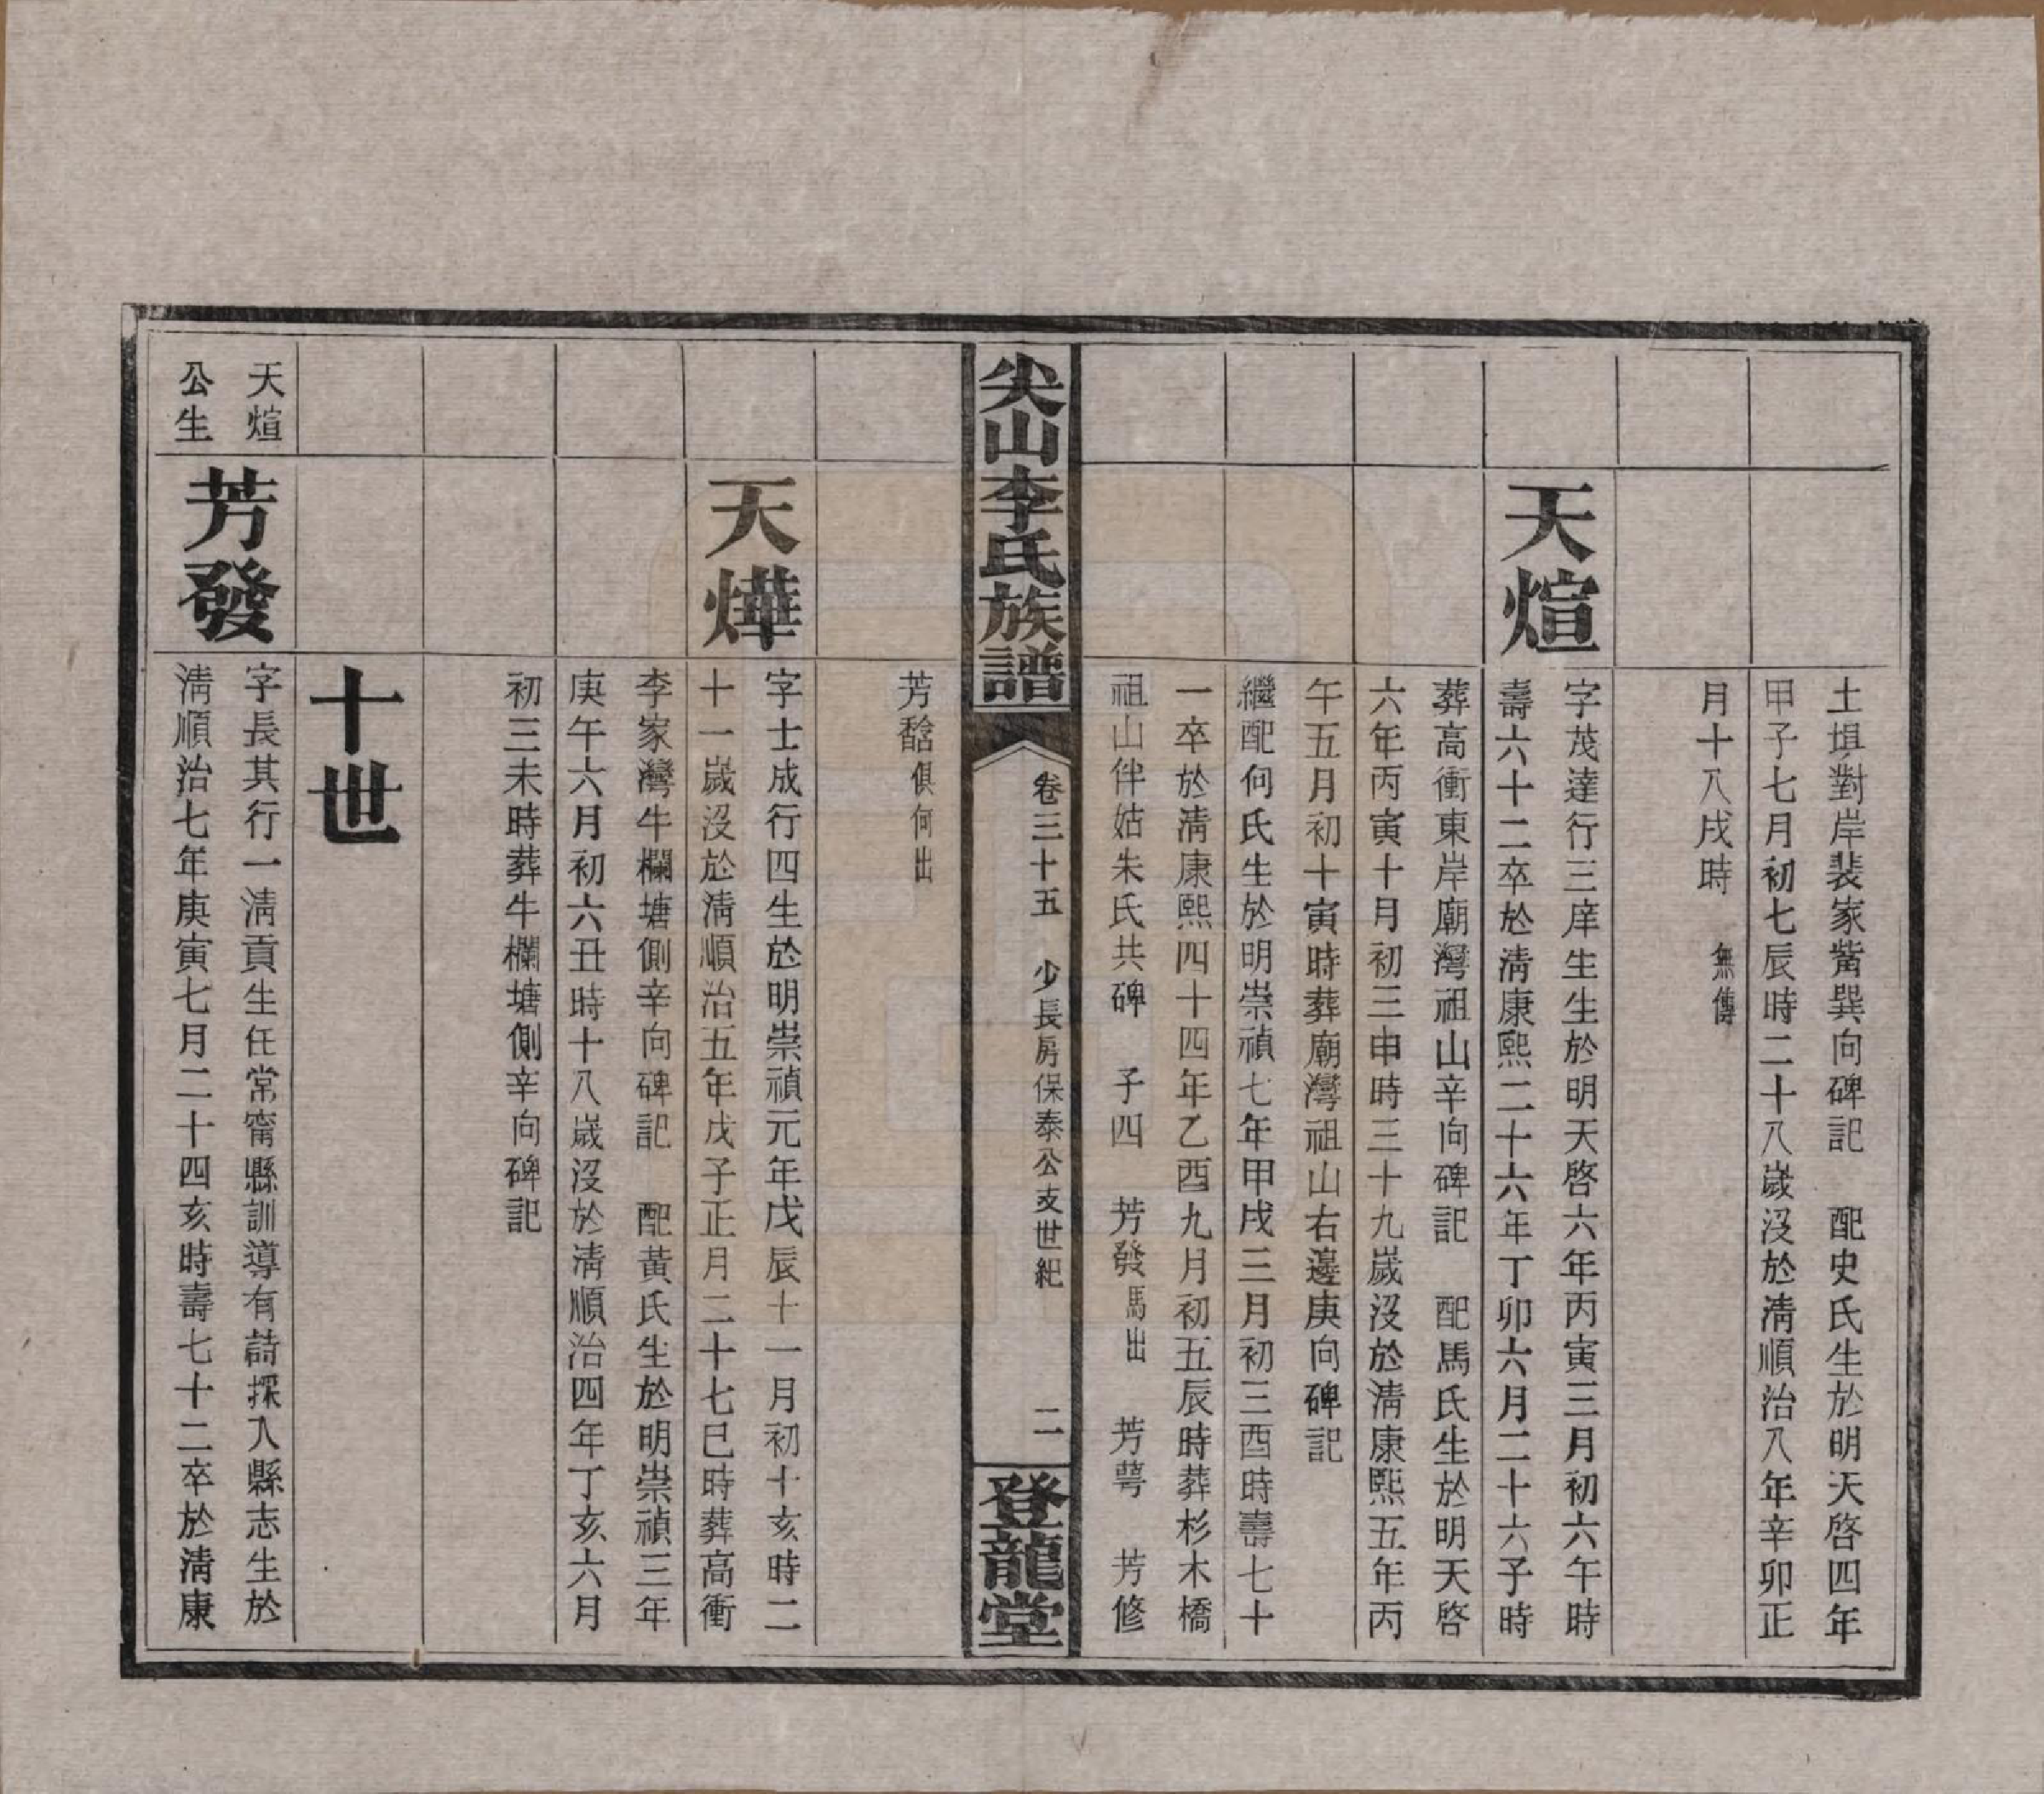 土垻對岸裴家觜巽向碑記　配史氏生於明天啓四年
甲子七月初七辰時二十八歲沒於淸順治八年辛卯正
月十八戌時　無傳
天煊
字茂達行三庠生生於明天啓六年丙寅三月初六午時
壽六十二卒於淸康熙二十六年丁卯六月二十六子時
葬高衝東岸廟灣祖山辛向碑記　配馬氏生於明天啓
六年丙寅十月初三申時三十九歲沒於淸康熙五年丙
午五月初十寅時葬廟灣祖山右邊庚向碑記
繼配何氏生於明崇禎七年甲戌三月初三酉時壽七十
一卒於淸康熙四十四年乙酉九月初五辰時葬杉木橋
祖山伴姑朱氏共碑　子四　芳發馬出　芳蕚　芳修
尖山李氏族譜
卷三十五　少長房保泰公支世紀
二
登龍堂
芳馠俱何出
天燁
字士成行四生於明崇禎元年戊辰十一月初十亥時二
十一歲沒於淸順治五年戊子正月二十七巳時葬高衝
李家灣牛欄塘側辛向碑記　配黃氏生於明崇禎三年
庚午六月初六丑時十八歲沒於淸順治四年丁亥六月
初三未時葬牛欄塘側辛向碑記
十世
天煊
公生
芳發
字長其行一淸貢生任常甯縣訓導有詩採入縣志生於
淸順治七年庚寅七月二十四亥時壽七十二卒於淸康